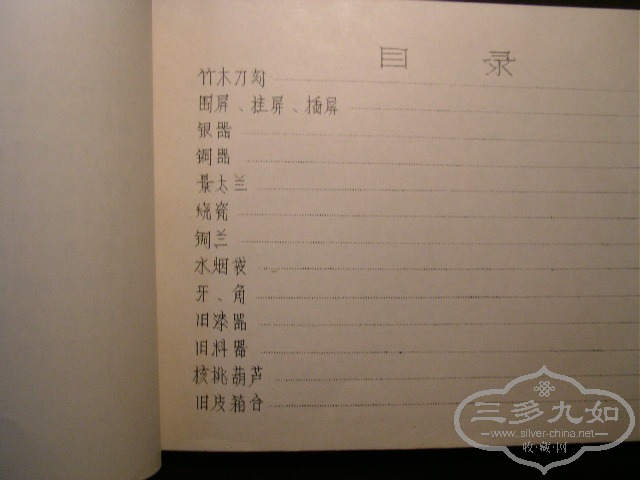 目 录
竹木刀刻
围屏、挂屏、插屏
银器
铜器
景太兰
烧瓷
铜兰
水烟袋
牙、角
旧漆器
旧料器
核桃葫芦
旧皮箱合
三多九如
www.silver-china.net
收·藏·网